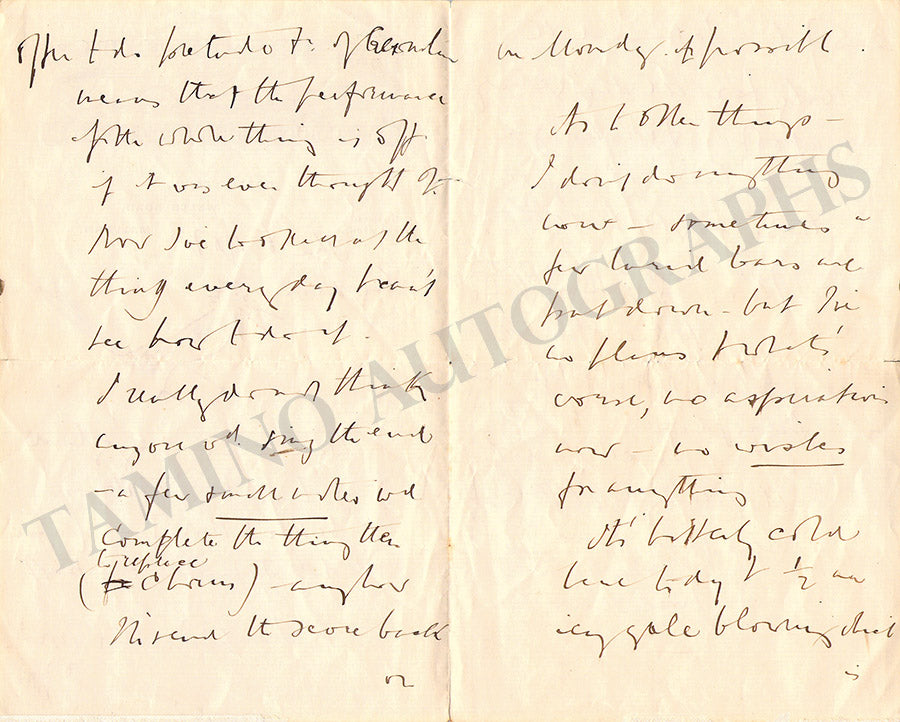 means that the performance
of the whole thing is off
if it was ever thought of.
Now I've looked at the
thing every day & can't
see how to do it.
I really do not think
anyone wd. sing the end
– a few small notes wd
complete the thing then
to replace
( chorus) – anyhow
I'll send the score back
on
on Monday if possible.
As to other things –
I don't do anything
now – sometimes a
few bars are
put down – but I've
no plans & what's
worse, no aspirations
now – no wishes
for anything
It's bitterly cold
here today & ½ an
icy gale blowing which
is
TAMINO AUTOGRAPHS